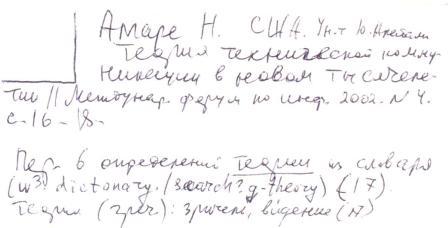 Амаре Н. США. Ун-т Ю. Алабам
Теория технической комму-
никации в новом тысячеле-
тии // Междунар. форум по инф. 2002. N 4.
с. 16 - 18.
Пер. 6 определений теории из словаря
(w3) dictonary. /search? g-theory) (17).
Теория (греч): зрочен, видение (17)